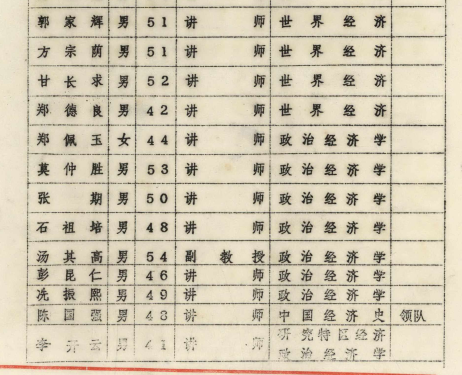 郭家辉 男 51 讲师 世界经济
方宗荫 男 51 讲师 世界经济
甘长求 男 52 讲师 世界经济
郑德良 男 42 讲师 世界经济
郑佩玉 女 44 讲师 政治经济学
莫仲胜 男 53 讲师 政治经济学
张期 男 50 讲师 政治经济学
石祖培 男 48 讲师 政治经济学
汤其高 男 54 副教授 政治经济学
彭昆仁 男 46 讲师 政治经济学
冼振熙 男 49 讲师 政治经济学
陈国强 男 43 讲师 中国经济史 领队
李云 男 41 讲师 研究特区经济
政治经济学